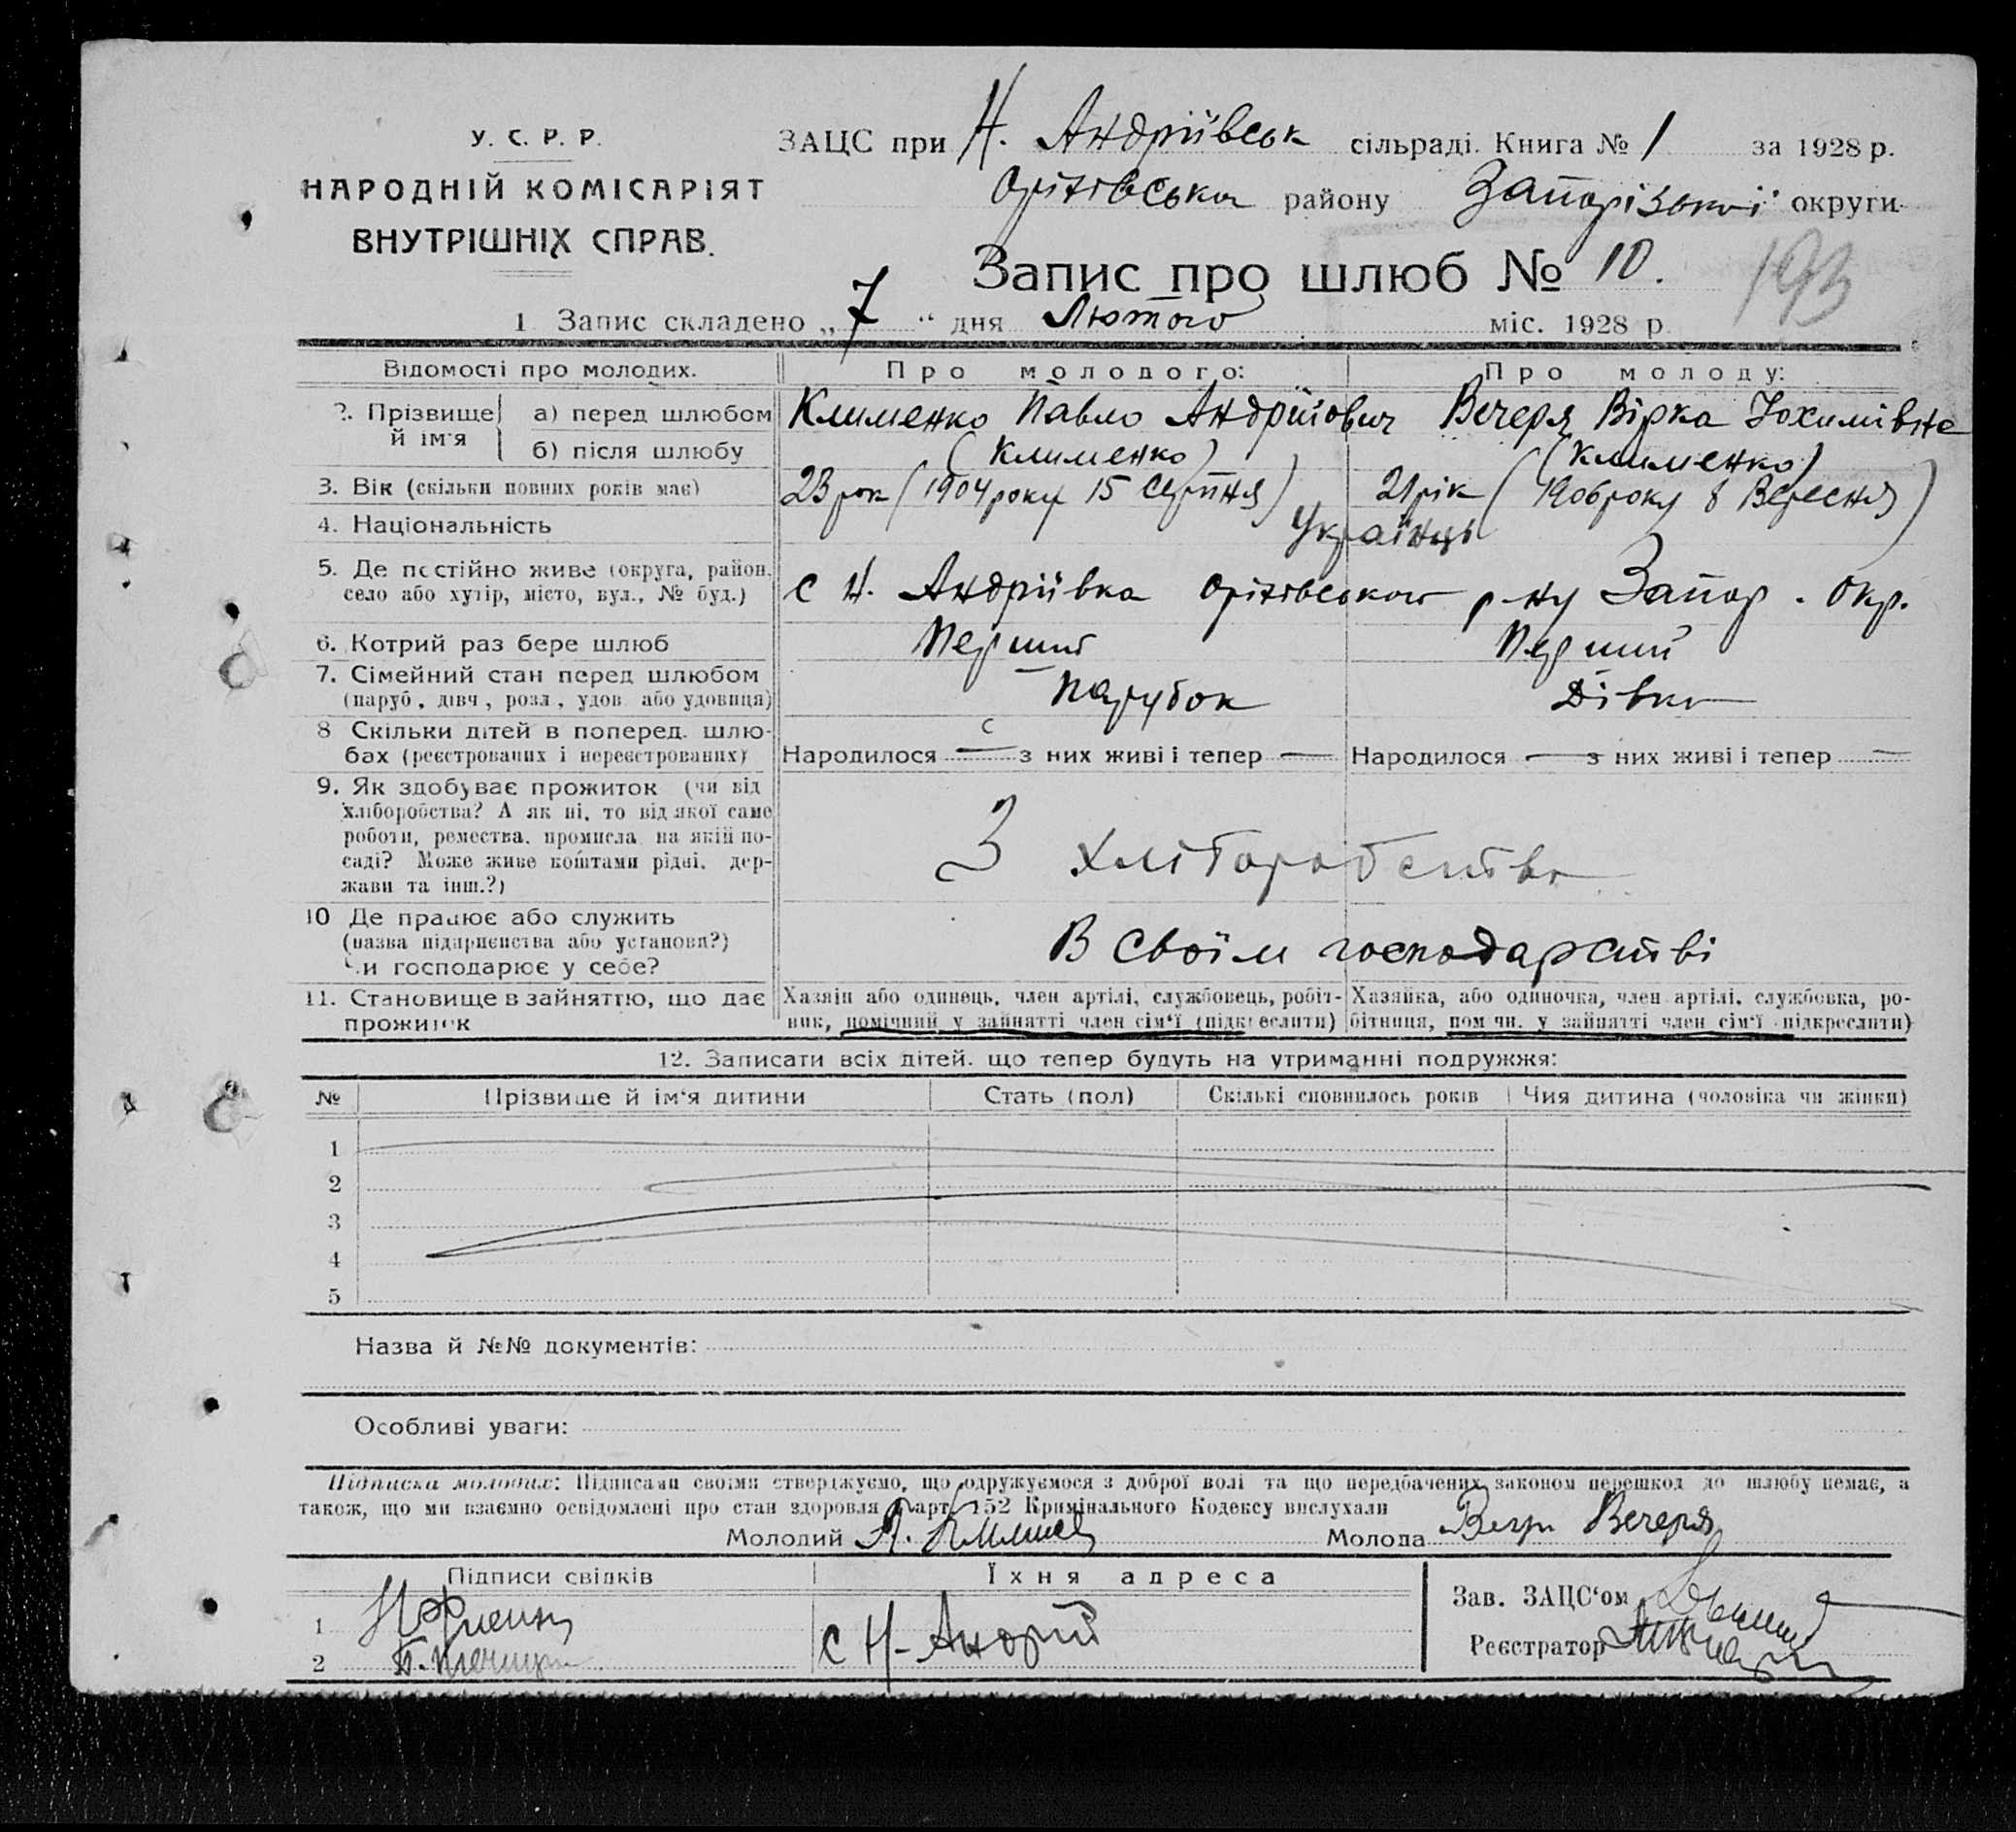 У. С. Р. Р.
НАРОДНІЙ КОМІСАРІЯТ
ВНУТРІШНІХ СПРАВ.
ЗАЦС при Н. Андріївськ сільраді. Книга № 1 за 1928 р.
Оріхівська району Запорізької округи
Запис про шлюб № 10.
193
1 Запис складено „ 7 “ дня Лютого міс. 1928 р
Відомості про молодих. Про молодого: Про молоду:
2. Прізвище й ім'я а) перед шлюбом Клименко Павло Андрійович Вечеря Вірка Юхимівна
б) після шлюбу (Клименко) (Клименко)
3. Вік (скільки повних років має) 23 рок (1904 року 15 Серпня) 21 рік (1906 року 8 Вересня)
4. Національність Українці
5. Де постійно живе (округа, район, село або хутір, місто, вул., № буд.) с Н. Андріївка Оріхівського р-ну Запор. Окр.
6. Котрий раз бере шлюб Перший Перший
7. Сімейний стан перед шлюбом (паруб, дівч, розл, удов або удовиця) Парубок Дівка
8 Скільки дітей в поперед. шлюбах (реєстрованих і нереєстрованих) Народилося — з них живі і тепер — Народилося — з них живі і тепер —
9. Як здобуває прожиток (чи від
хліборобства? А як ні, то від якої саме
роботи, ремества, промисла на якій по-
саді? Може живе коштами рідні, дер-
жави та інш.?)
З хліборобства
10 Де працює або служить
(назва підприємства або установи?)
Чи господарює у себе?
В своїм господарстві
11. Становище в зайняттю, що дає прожиток
Хазяїн або одинець, член артілі, службовець, робіт-
ник, помічний у зайнятті член сім'ї (підкреслити)
Хазяйка, або одиночка, член артілі, службовка, ро-
бітниця, помічн. у зайнятті член сім'ї підкреслити)
12. Записати всіх дітей, що тепер будуть на утриманні подружжя:
№ Прізвище й ім'я дитини Стать (пол) Скількі сповнилось років Чия дитина (чоловіка чи жінки)
1
2
3
4
5
Назва й №№ документів:
Особливі уваги:
Підписка молодих: Підписами своїми стверджуємо, що одружуємося з доброї волі та що передбачених законом перешкод до шлюбу немає, а
також, що ми взаємно освідомлені про стан здоровля арт 152 Кримінального Кодексу вислухали
Молодий П. Молода Вечеря
Підписи свідків Їхня адреса
1
2
с Н-Андрії
Зав. ЗАЦС'ом
Реєстратор